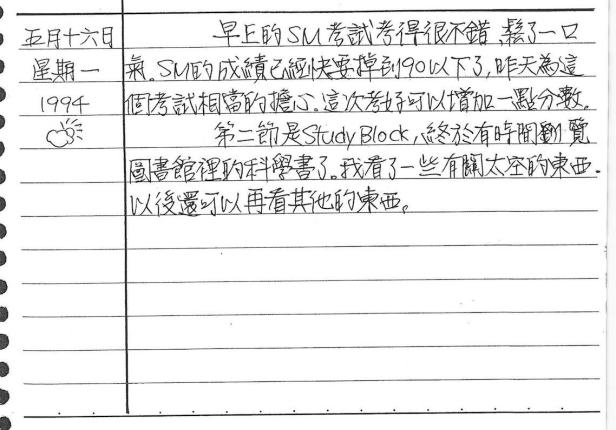 五月十六日
星期一
1994
早上的SM考試考得很不錯,鬆了一口
氣。SM的成績已經快要掉到90以下了,昨天為這
個考試相當的擔心。這次考好可以增加一點分數。
第二節是Study Block,終於有時間劉覽
圖書館裡的科學書了。我看了一些有關太空的東西.
以後還可以再看其他的東西。